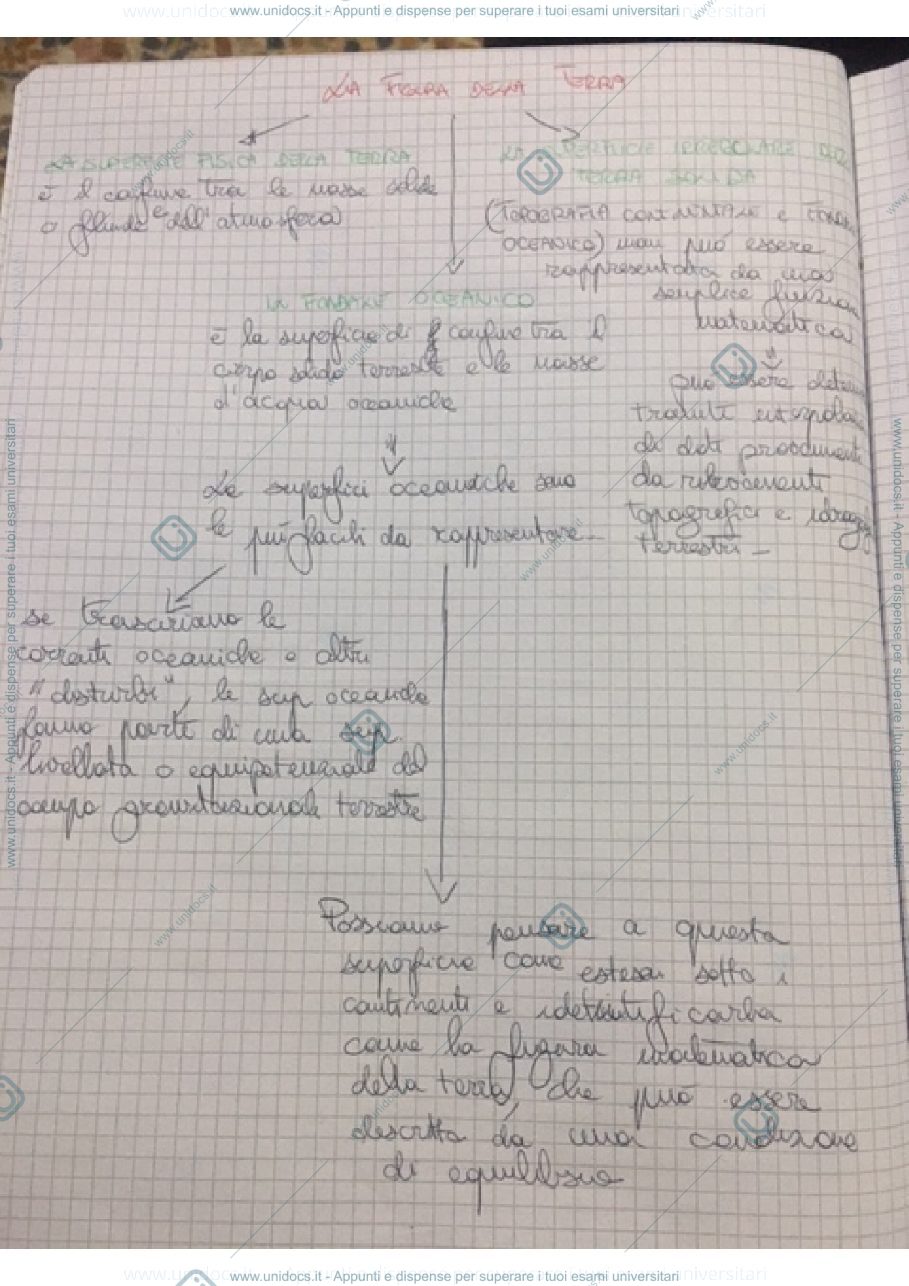 www.unidocs.it - Appunti e dispense per superare i tuoi esami universitari
LA FIGURA DELLA TERRA
LA SUPERFICIE FISICA DELLA TERRA
è il confine tra le masse solide
o fluide e dell'atmosfera
LA SUPERFICIE IRREGOLARE DELLA
TERRA SOLIDA
(TOPOGRAFIA CONTINENTALE e FONDALE
OCEANICO) non può essere
rappresentata da una
semplice funzione
matematica
può essere determ
tramite interpola
di dati provenienti
da rilevamenti
topografici e idrogr
terrestri -
IL FONDALE OCEANICO
è la superficie di confine tra il
corpo solido terrestre e le masse
d'acqua oceaniche
Le superfici oceaniche sono
le più facili da rappresentare -
se trascuriamo le
correnti oceaniche e altri
"disturbi", le sup oceaniche
fanno parte di una sup.
livellata o equipotenziale del
campo gravitazionale terrestre
Possiamo pensare a questa
superficie come estesa sotto i
continenti e identificarla
come la figura matematica
della terra, che può essere
descritta da una condizione
di equilibrio
www.unidocs.it - Appunti e dispense per superare i tuoi esami universitari